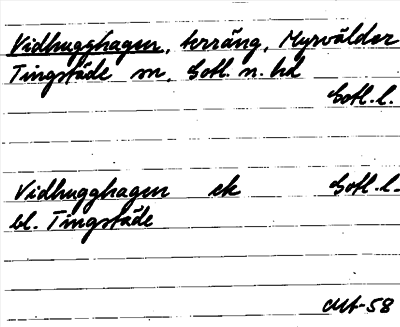 Vidhugghagen, terräng, Myrvälder
Tingstäde sn, Gotl. n. hd
Gotl. l.
Vidhugghagen ek Gotl. l.
bl. Tingstäde
-58